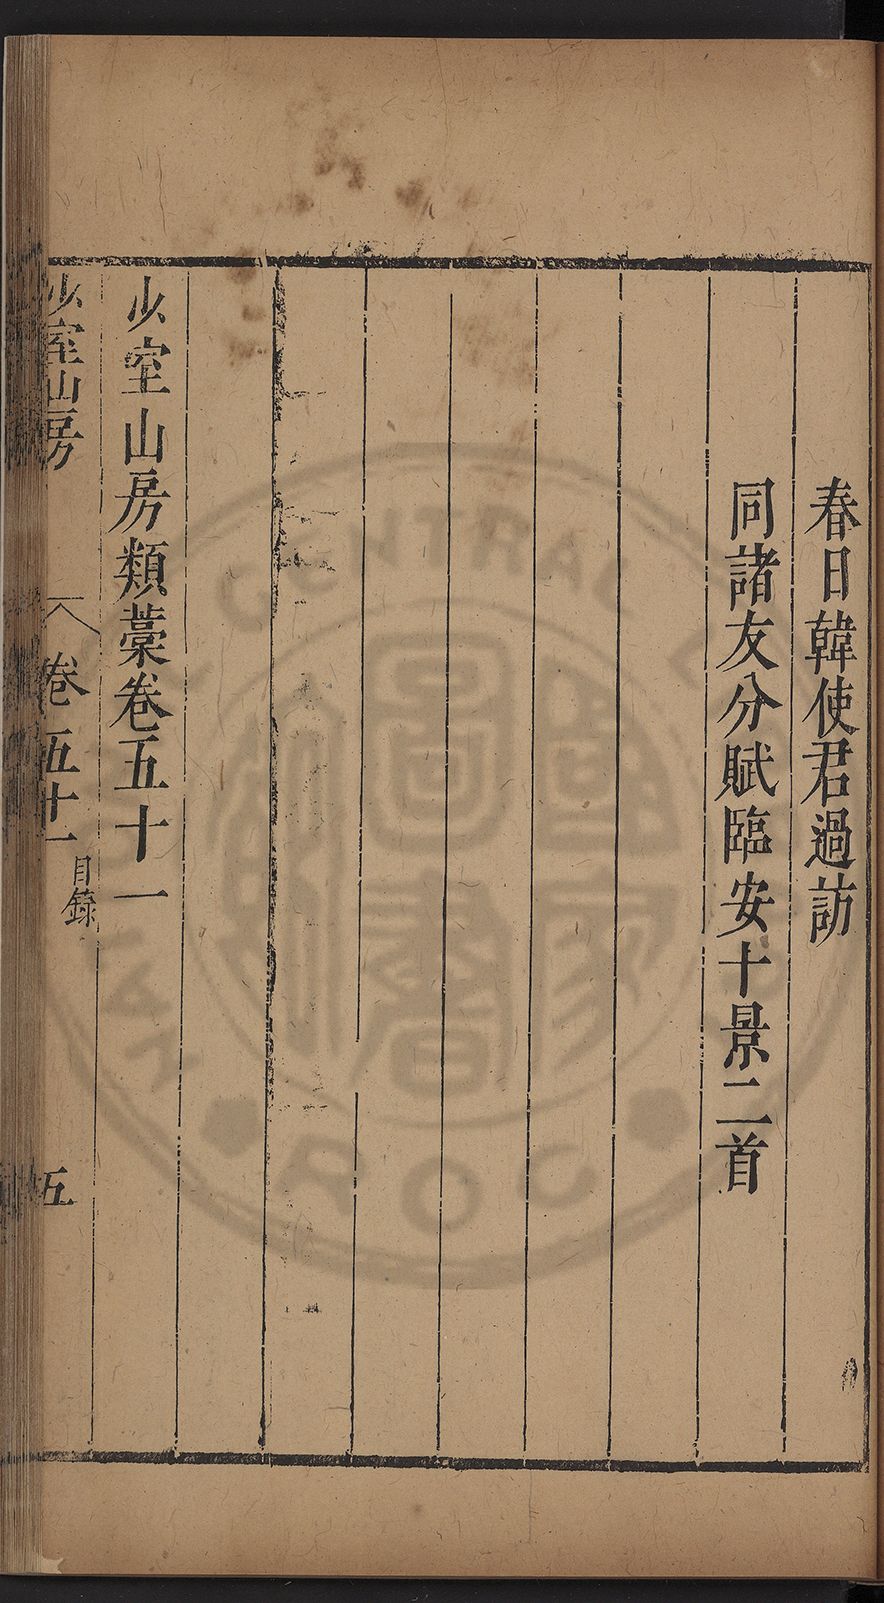 春日韓使君過訪
同諸友分賦臨安十景二首
少室山房類藁卷五十一
少室山房
卷五十一
目錄
五